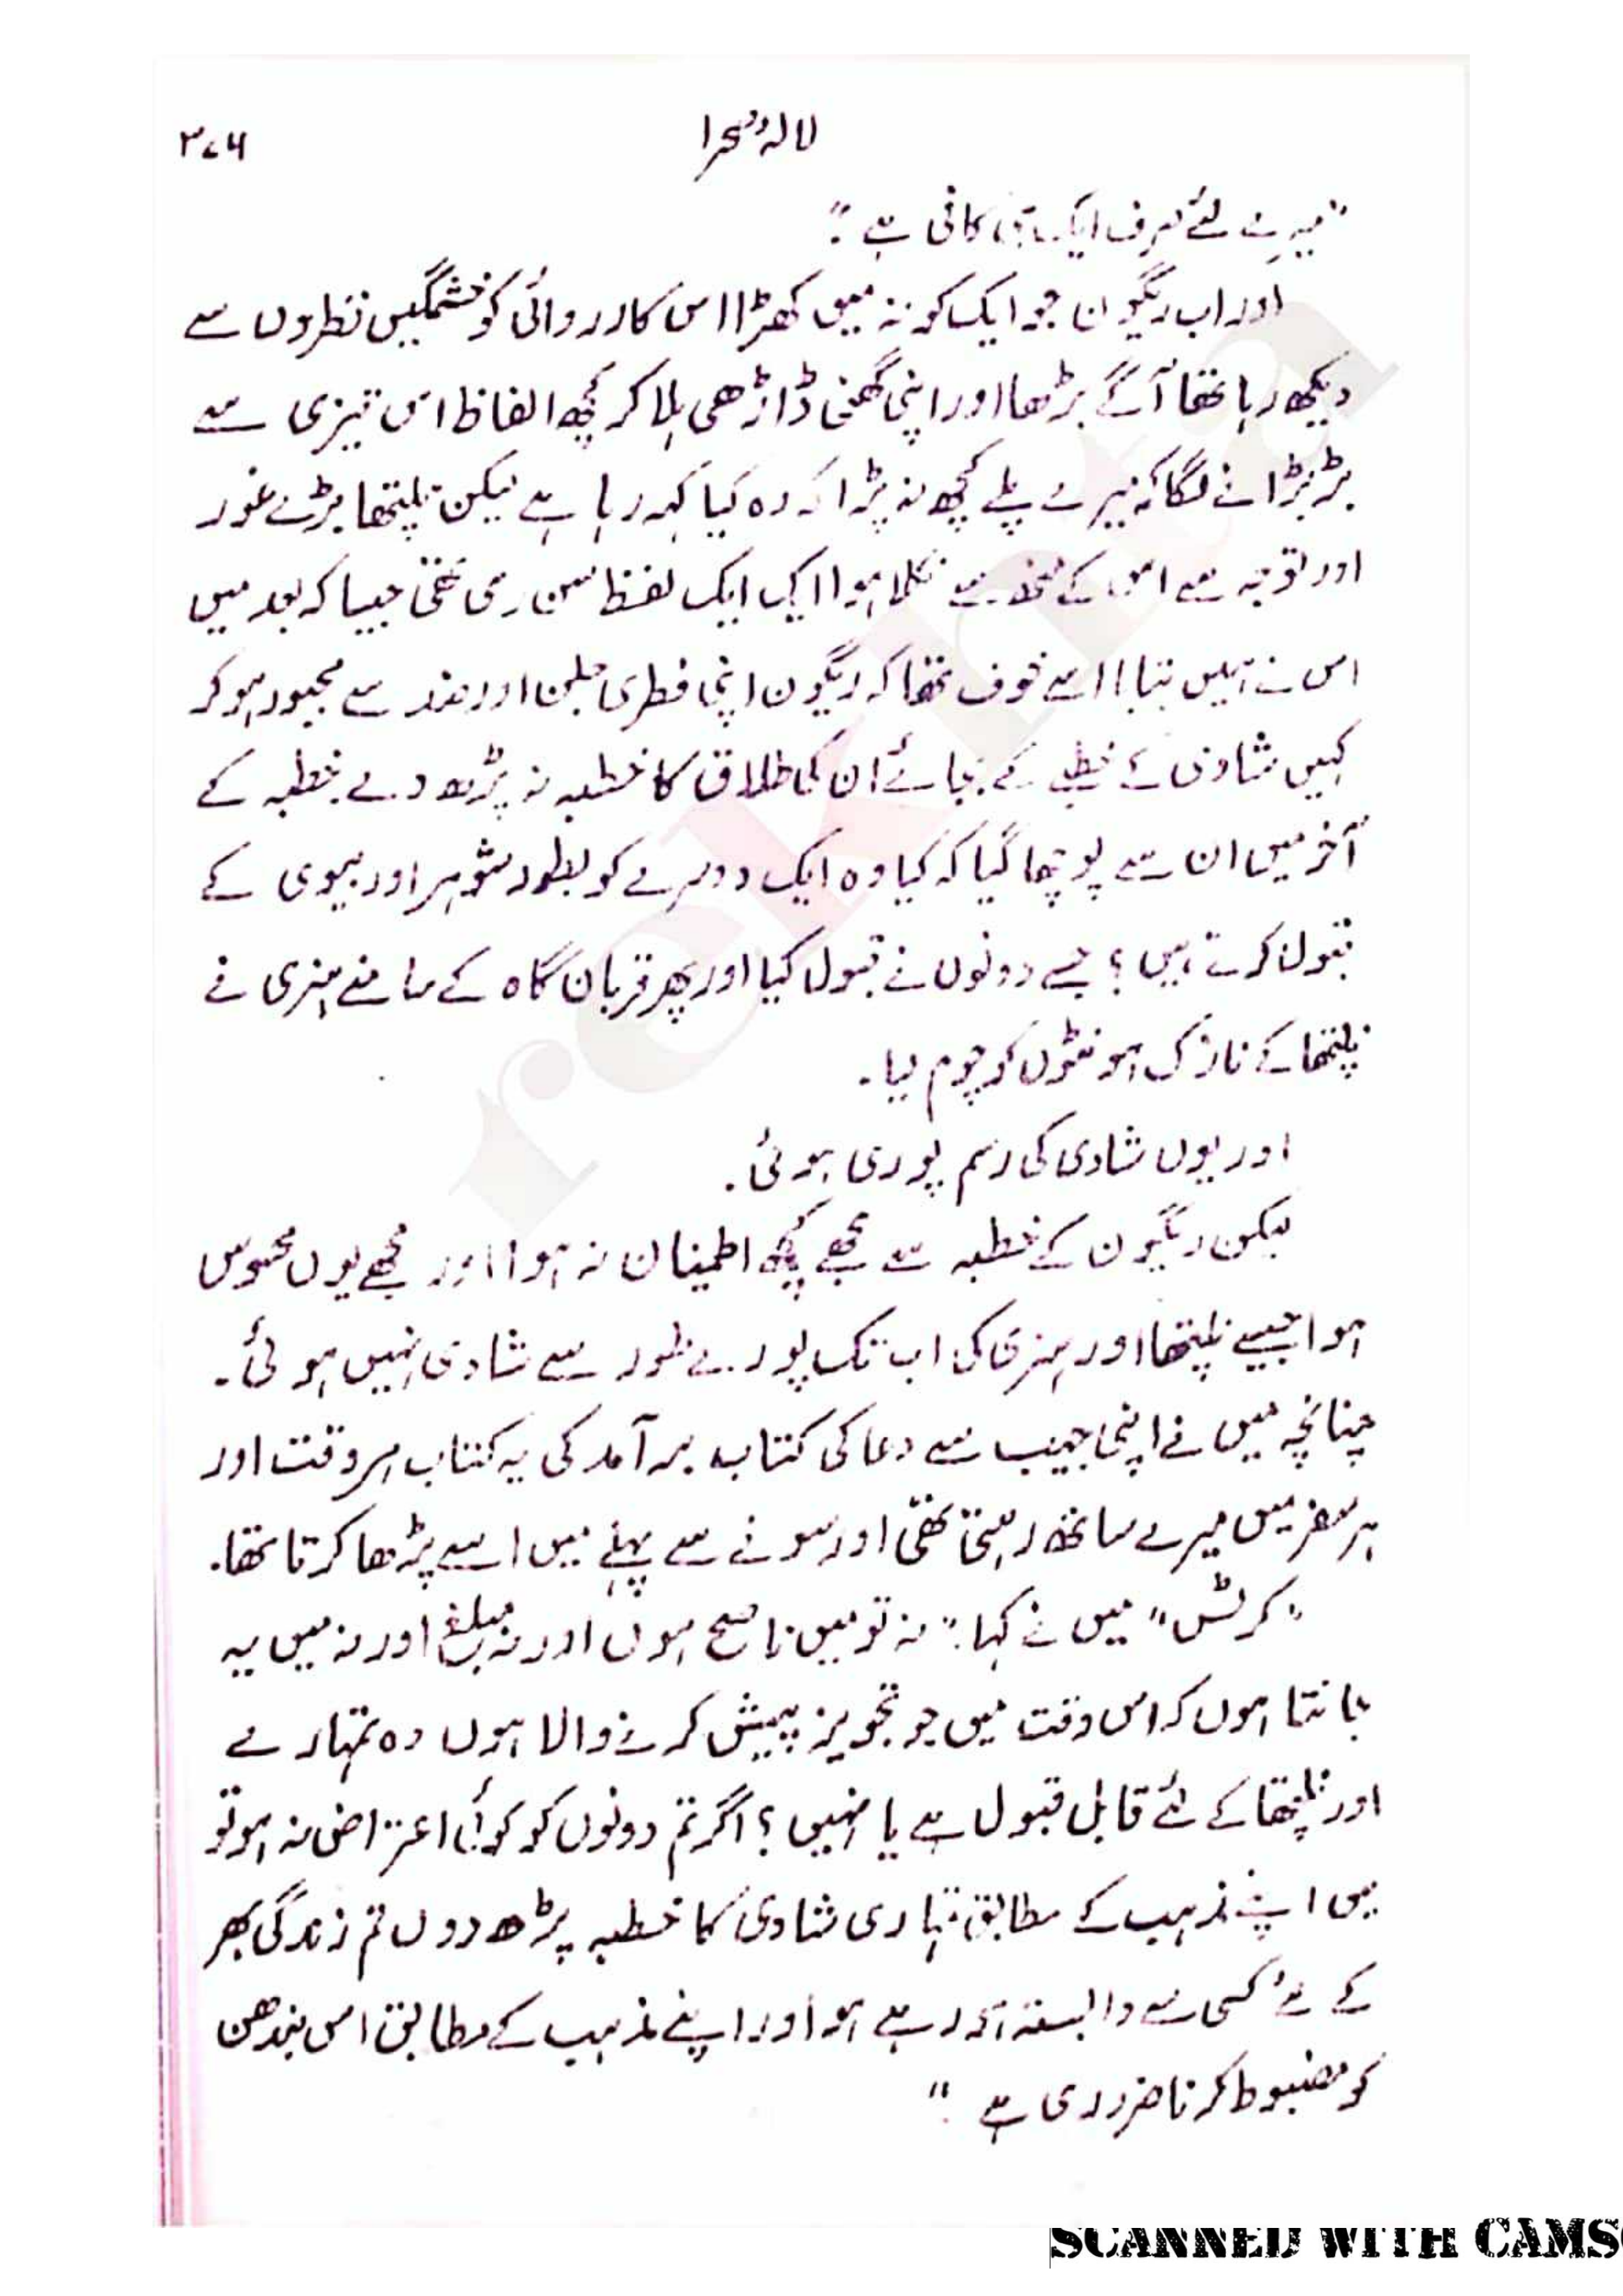 لالہ صحرا
۳۷۶
"میرے لئے صرف ایک ہی کافی ہے۔"
اور اب ریگون جو ایک کونہ میں کھڑا اس کارروائی کو خشمگیں نظروں سے
دیکھ رہا تھا آگے بڑھا اور اپنی گھنی ڈاڑھی ہلا کر کچھ الفاظ اس تیزی سے
بڑبڑانے لگا کہ میرے پلے کچھ نہ پڑا کہ وہ کیا کہہ رہا ہے لیکن نلپتھا بڑے غور
اور توجہ سے اس کے منھ سے نکلا ہوا ایک ایک لفظ سن رہی تھی جیسا کہ بعد میں
اس نے ہمیں بتایا اسے خوف تھا کہ ریگون اپنی فطری جلن اور ضد سے مجبور ہو کر
کہیں شادی کے خطبے کے بجائے ان کی طلاق کا خطبہ نہ پڑھ دے۔ خطبہ کے
آخر میں ان سے پوچھا گیا کہ کیا وہ ایک دوسرے کو بطور شوہر اور بیوی کے
قبول کرتے ہیں؟ جسے دونوں نے قبول کیا اور پھر قربان گاہ کے سامنے ہنری نے
نلپتھا کے نازک ہونٹوں کو چوم لیا۔
اور یوں شادی کی رسم پوری ہوئی۔
لیکن ریگون کے خطبہ سے مجھے کچھ اطمینان نہ ہوا اور مجھے یوں محسوس
ہوا جیسے نلپتھا اور ہنری کی اب تک پورے طور سے شادی نہیں ہوئی۔
چنانچہ میں نے اپنی جیب سے دعا کی کتاب برآمد کی یہ کتاب ہر وقت اور
ہر سفر میں میرے ساتھ رہتی تھی اور سونے سے پہلے میں اسے پڑھا کرتا تھا۔
"کرٹس" میں نے کہا: "نہ تو میں ناصح ہوں اور نہ مبلغ اور نہ میں یہ
جانتا ہوں کہ اس وقت میں جو تجویز پیش کرنے والا ہوں وہ تمہارے
اور نلپتھا کے لئے قابل قبول ہے یا نہیں؟ اگر تم دونوں کو کوئی اعتراض نہ ہو تو
میں اپنے مذہب کے مطابق تمہاری شادی کا خطبہ پڑھ دوں تم زندگی بھر
کے لئے کسی سے وابستہ ہو رہے ہو اور اپنے مذہب کے مطابق اس بندھن
کو مضبوط کرنا ضروری ہے"
rekhta
SCANNED WITH CAMS